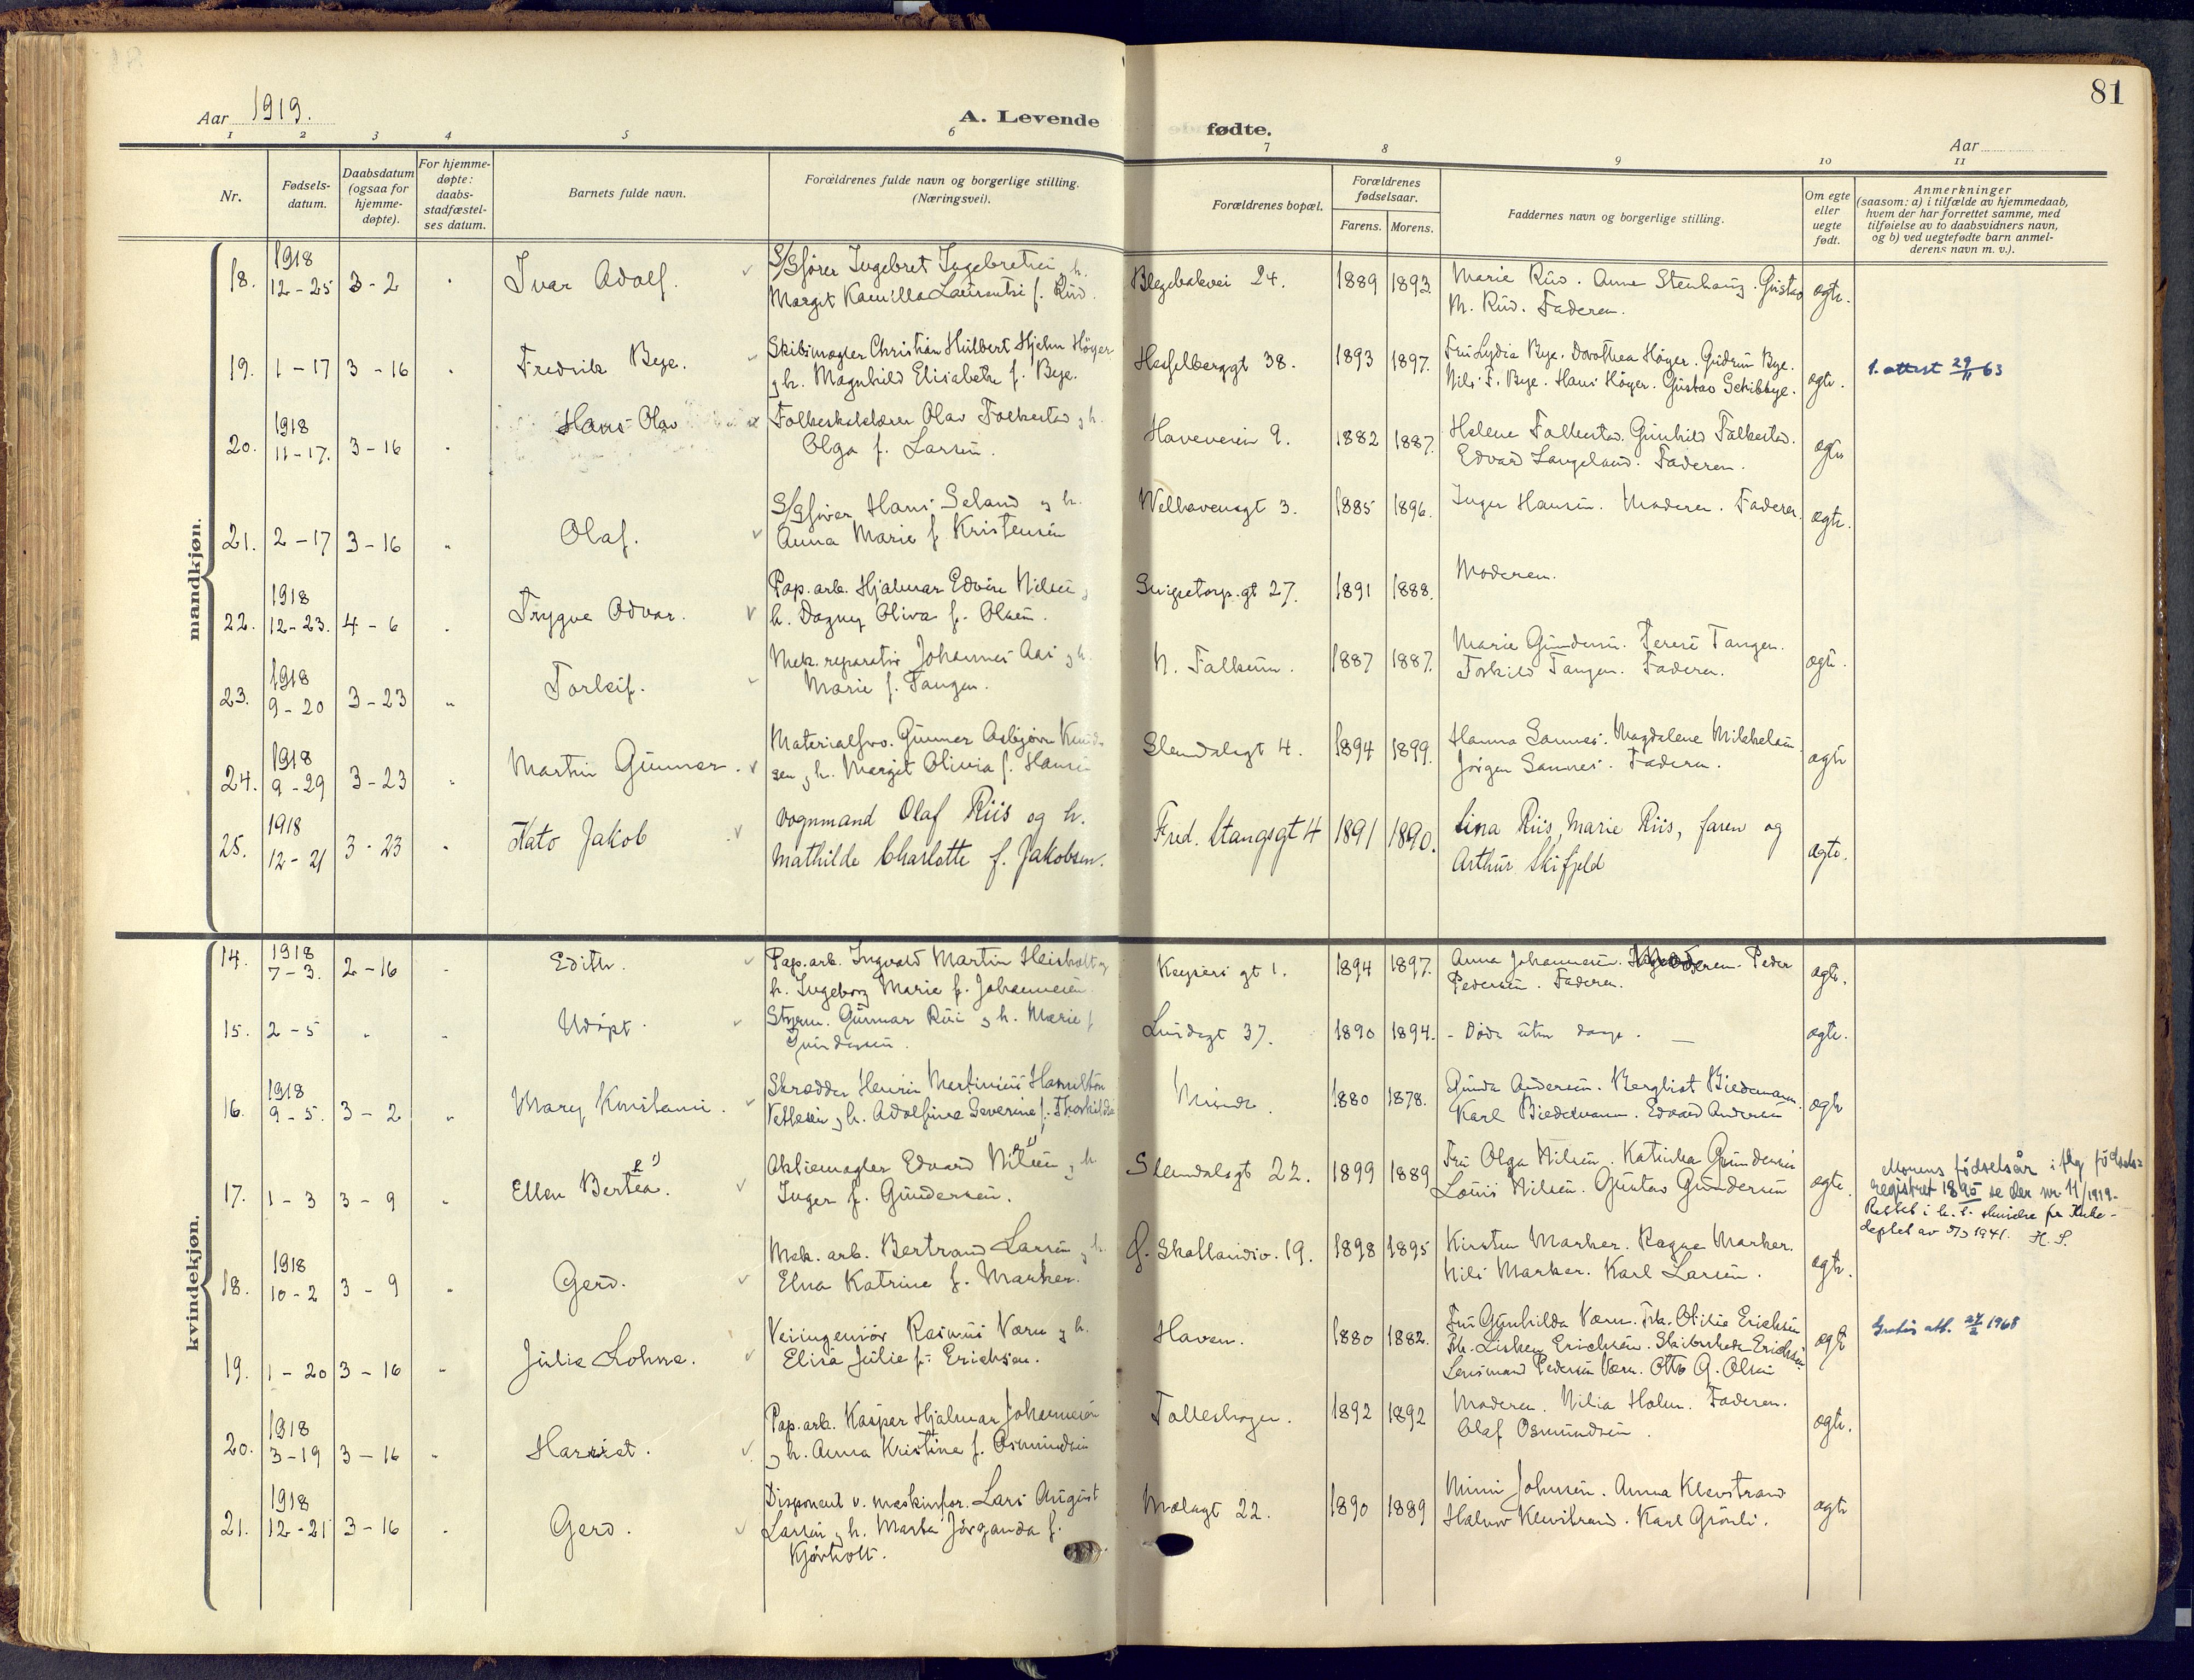 81
Aar 1919.
A. Levende fødte.
Aar
1 2 3 4 5 6 7 8 9 10 11
Nr.
Fødsels-
datum.
Daabsdatum
(ogsaa for
hjemme-
døpte).
For hjemme-
døpte:
daabs-
stadfæstel-
ses datum.
Barnets fulde navn.
Forældrenes fulde navn og borgerlige stilling.
(Næringsvei).
Forældrenes bopæl.
Forældrenes
fødselsaar.
Farens. Morens.
Faddernes navn og borgerlige stilling.
Om egte
eller
uegte
født.
Anmerkninger
(saasom: a) i tilfælde av hjemmedaab,
hvem der har forrettet samme, med
tilføielse av to daabsvidners navn,
og b) ved uegtefødte barn anmel-
derens navn m. v.).
mandkjøn.
18. 1918 12-25 3-2 Ivar Adolf.
Ingebret Ingebretsen h.
Margit Kamilla f. Rud.
24. 1889 1893
Marie Rud. Anne Stenhaug. Gustav
M. Rud. Faderen. egte.
19. 1-17 3-16 Fredrik Bye.
Skibsmægler Christian Hulbert Hjelm Höyer
og h. Magnhild Elisabeth f. Bye.
Hesselberggt 38. 1893 1897.
Fru Lydia Bye. Dorothea Höyer. Gudrun Bye.
Nils F. Bye. Hans Höyer. Gustav Schibbye. egte.
1. attest 29/11 63
20. 1918 11-17. 3-16 Hans Olav
Folkeskolelærer Olav Folkestad og h.
Olga f. Larsen.
Haveveien 9. 1882 1887.
Helene Folkestad. Gunhild Folkestad.
Edvard Langeland. Faderen. egte
21. 2-17 3-16 Olaf.
Hans Seland og h.
Anna Marie f. Kristensen
Welhavensgt 3. 1885 1896.
Inger Hansen. Moderen. Faderen. egte.
22. 1918 12-23. 4-6 Trygve Odvar.
Pap. arb. Hjalmar Edvin Nilsen og
h. Dagny Oliva f. Olsen.
gt 27. 1891 1888.
Moderen.
23. 1918 9-20 3-23 Torleif.
Mek. reparatør Johannes Aas og h.
Marie f. Tangen.
N. Falkum. 1887 1887.
Marie Gundersen. Terese Tangen.
Torkild Tangen. Faderen. egte.
24. 1918 9-29 3-23 Martin Gunnar.
Gunnar Asbjørn Knud-
sen og h. Margit Olivia f. Hansen
Slemdalsgt 4. 1894 1899.
Hanna Sannes. Magdalene Mikkelsen.
Jørgen Sannes. Faderen. egte
25. 1918 12-21 3-23 Kato Jakob
vognmand Olaf Riis og h.
Mathilde Charlotte f. Jakobsen.
Fred. Stangsgt 4 1891 1890.
Lina Riis, Marie Riis, faren og
Arthur Skifjeld egte.
kvindekjøn.
14. 1918 7-3. 2-16 Edith.
Pap. arb. Ingvald Martin Heisholt og
h. Ingeborg Marie f. Johannesen.
Keysers gt 1. 1894 1897.
Anna Johannesen. Moderen. Peder
Pedersen. Faderen. egte.
15. 2-5 Udøpt.
Styrm. Gunnar Riis og h. Marie f.
Gundersen.
Lundegt 37. 1890 1894.
- Døde uten daap. - egte.
16. 1918 9-5. 3-2 Mary Konstanse.
Skrædder Henrik Martinius Hamilton
og h. Adolfine Severine f. Thorkilds
1880 1878.
Gunda Andersen. Bergliot Biedemann.
Karl Biedemann. Edvard Andersen egte
17. 1-3 3-9 Ellen Bertea.
Aktiemægler Edvard Nilsen og h.
Inger f. Gundersen.
Slemdalsgt 22. 1899 1889
Fru Olga Nilsen. Katinka Gundersen
Louis Nilsen. Gustav Gundersen egte.
Morens fødselsår i flg fødsels-
registret 1895 se der nr 11/1919.
Rettet i h. t. skrivelse fra Kirke-
deptet av 1941. H. S.
18. 1918 10-2 3-9 Gerd.
Mek. arb. Bertrand Larsen og h.
Elna Katrine f. Marker.
19. 1898 1895
Kirsten Marker. Ragna Marker.
Nils Marker. Karl Larsen. egte.
19. 1-20 3-16 Julie Lohne.
Veiingeniør Rasmus Værn og h.
Elisa Julie f. Erichsen.
Haven. 1880 1882.
Fru Gunhilda Værn. Frk. Otilie Erichsen
Frk. Lisken Erichsen. Skibsreder Erichsen
Lensmand Pedersen Værn. Otto G. Olsen egte
Gratis att. 1968
20. 1918 3-19 3-16 Harriet.
Pap. arb. Kaspar Hjalmar Johannesen
og h. Anna Kristine f. Osmundsen
Folleshagen. 1892 1892
Moderen. Nilia Holm. Faderen.
Olaf Osmundsen. egte.
21. 1918 12-21 3-16 Gerd.
Disponent v. maskinfor. Lars August
Larsen og h. Marta Jørganda f.
Kjørholt.
Mælagt 22. 1890 1889
Mimi Johnsen. Anna Klevstrand
Halvor Klevstrand. Karl Grønli. egte